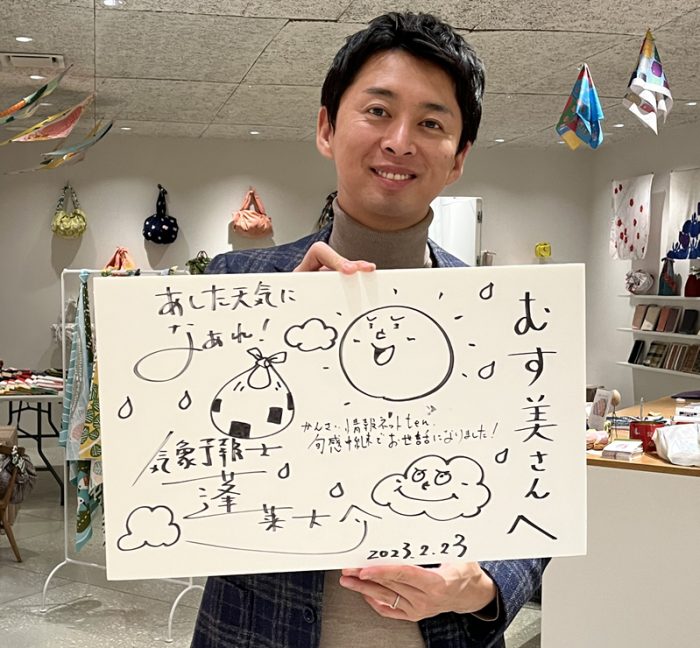 むす美さんへ
あした天気に
なぁれ!
かんさい情報ネットten.
旬感中継でお世話になりました!
気象予報士
蓬莱大介
2023.2.23